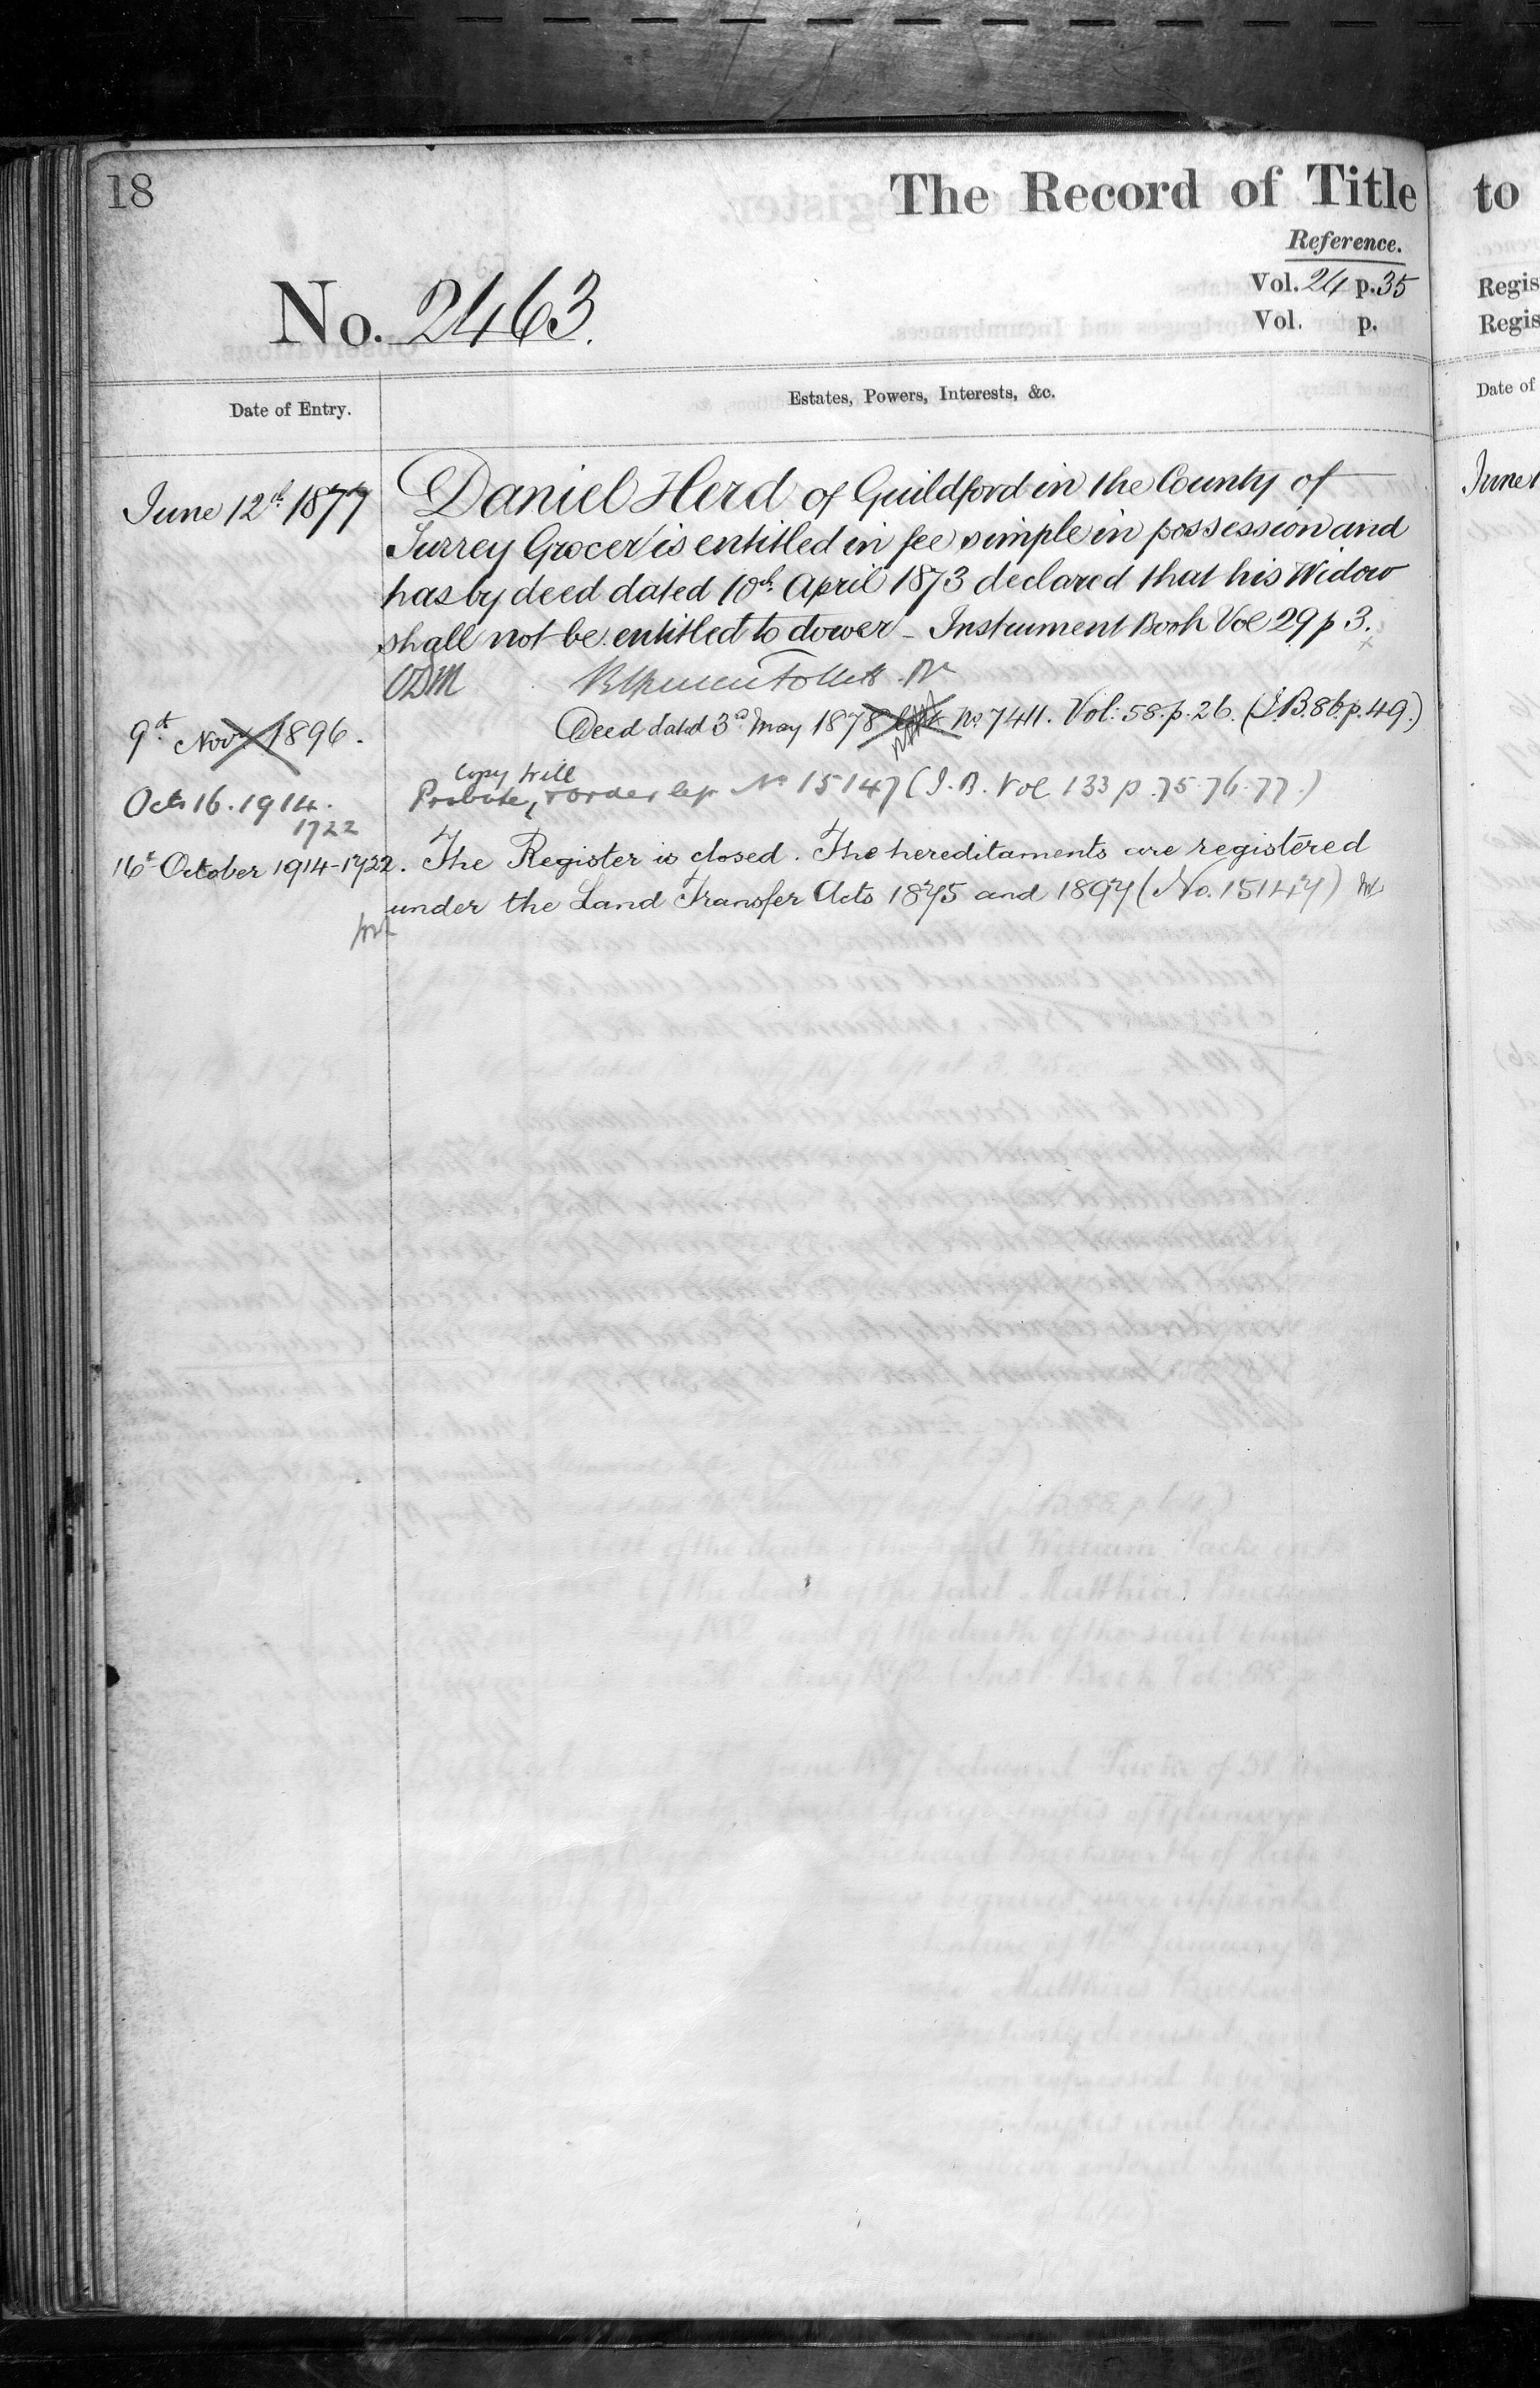 18
The Record of Title
to
Reference.
No. 2463.
Vol. 24 p. 35
Vol. p.
Regis
Regis
Date of Entry.
Estates, Powers, Interests, &c.
Date of
June 12th 1877
Daniel Herd of Guildford in the County of
Surrey Grocer is entitled in fee simple in possession and
has by deed dated 10th April 1873 declared that his Widow
shall not be entitled to dower - Instrument Book Vol 29 p 3.
June 1
9th Novr 1896.
Deed dated 3rd May 1878 No 7411. Vol: 58. p. 26. (I.B. 86. p. 49.)
Copy Will
Oct 16. 1914.
Probate, & order left No 15147 (I.B. Vol 133 p. 75. 76. 77.)
1722
16th October 1914-1722. The Register is closed. The hereditaments are registered
under the Land Transfer Acts 1875 and 1897 (No. 15147)